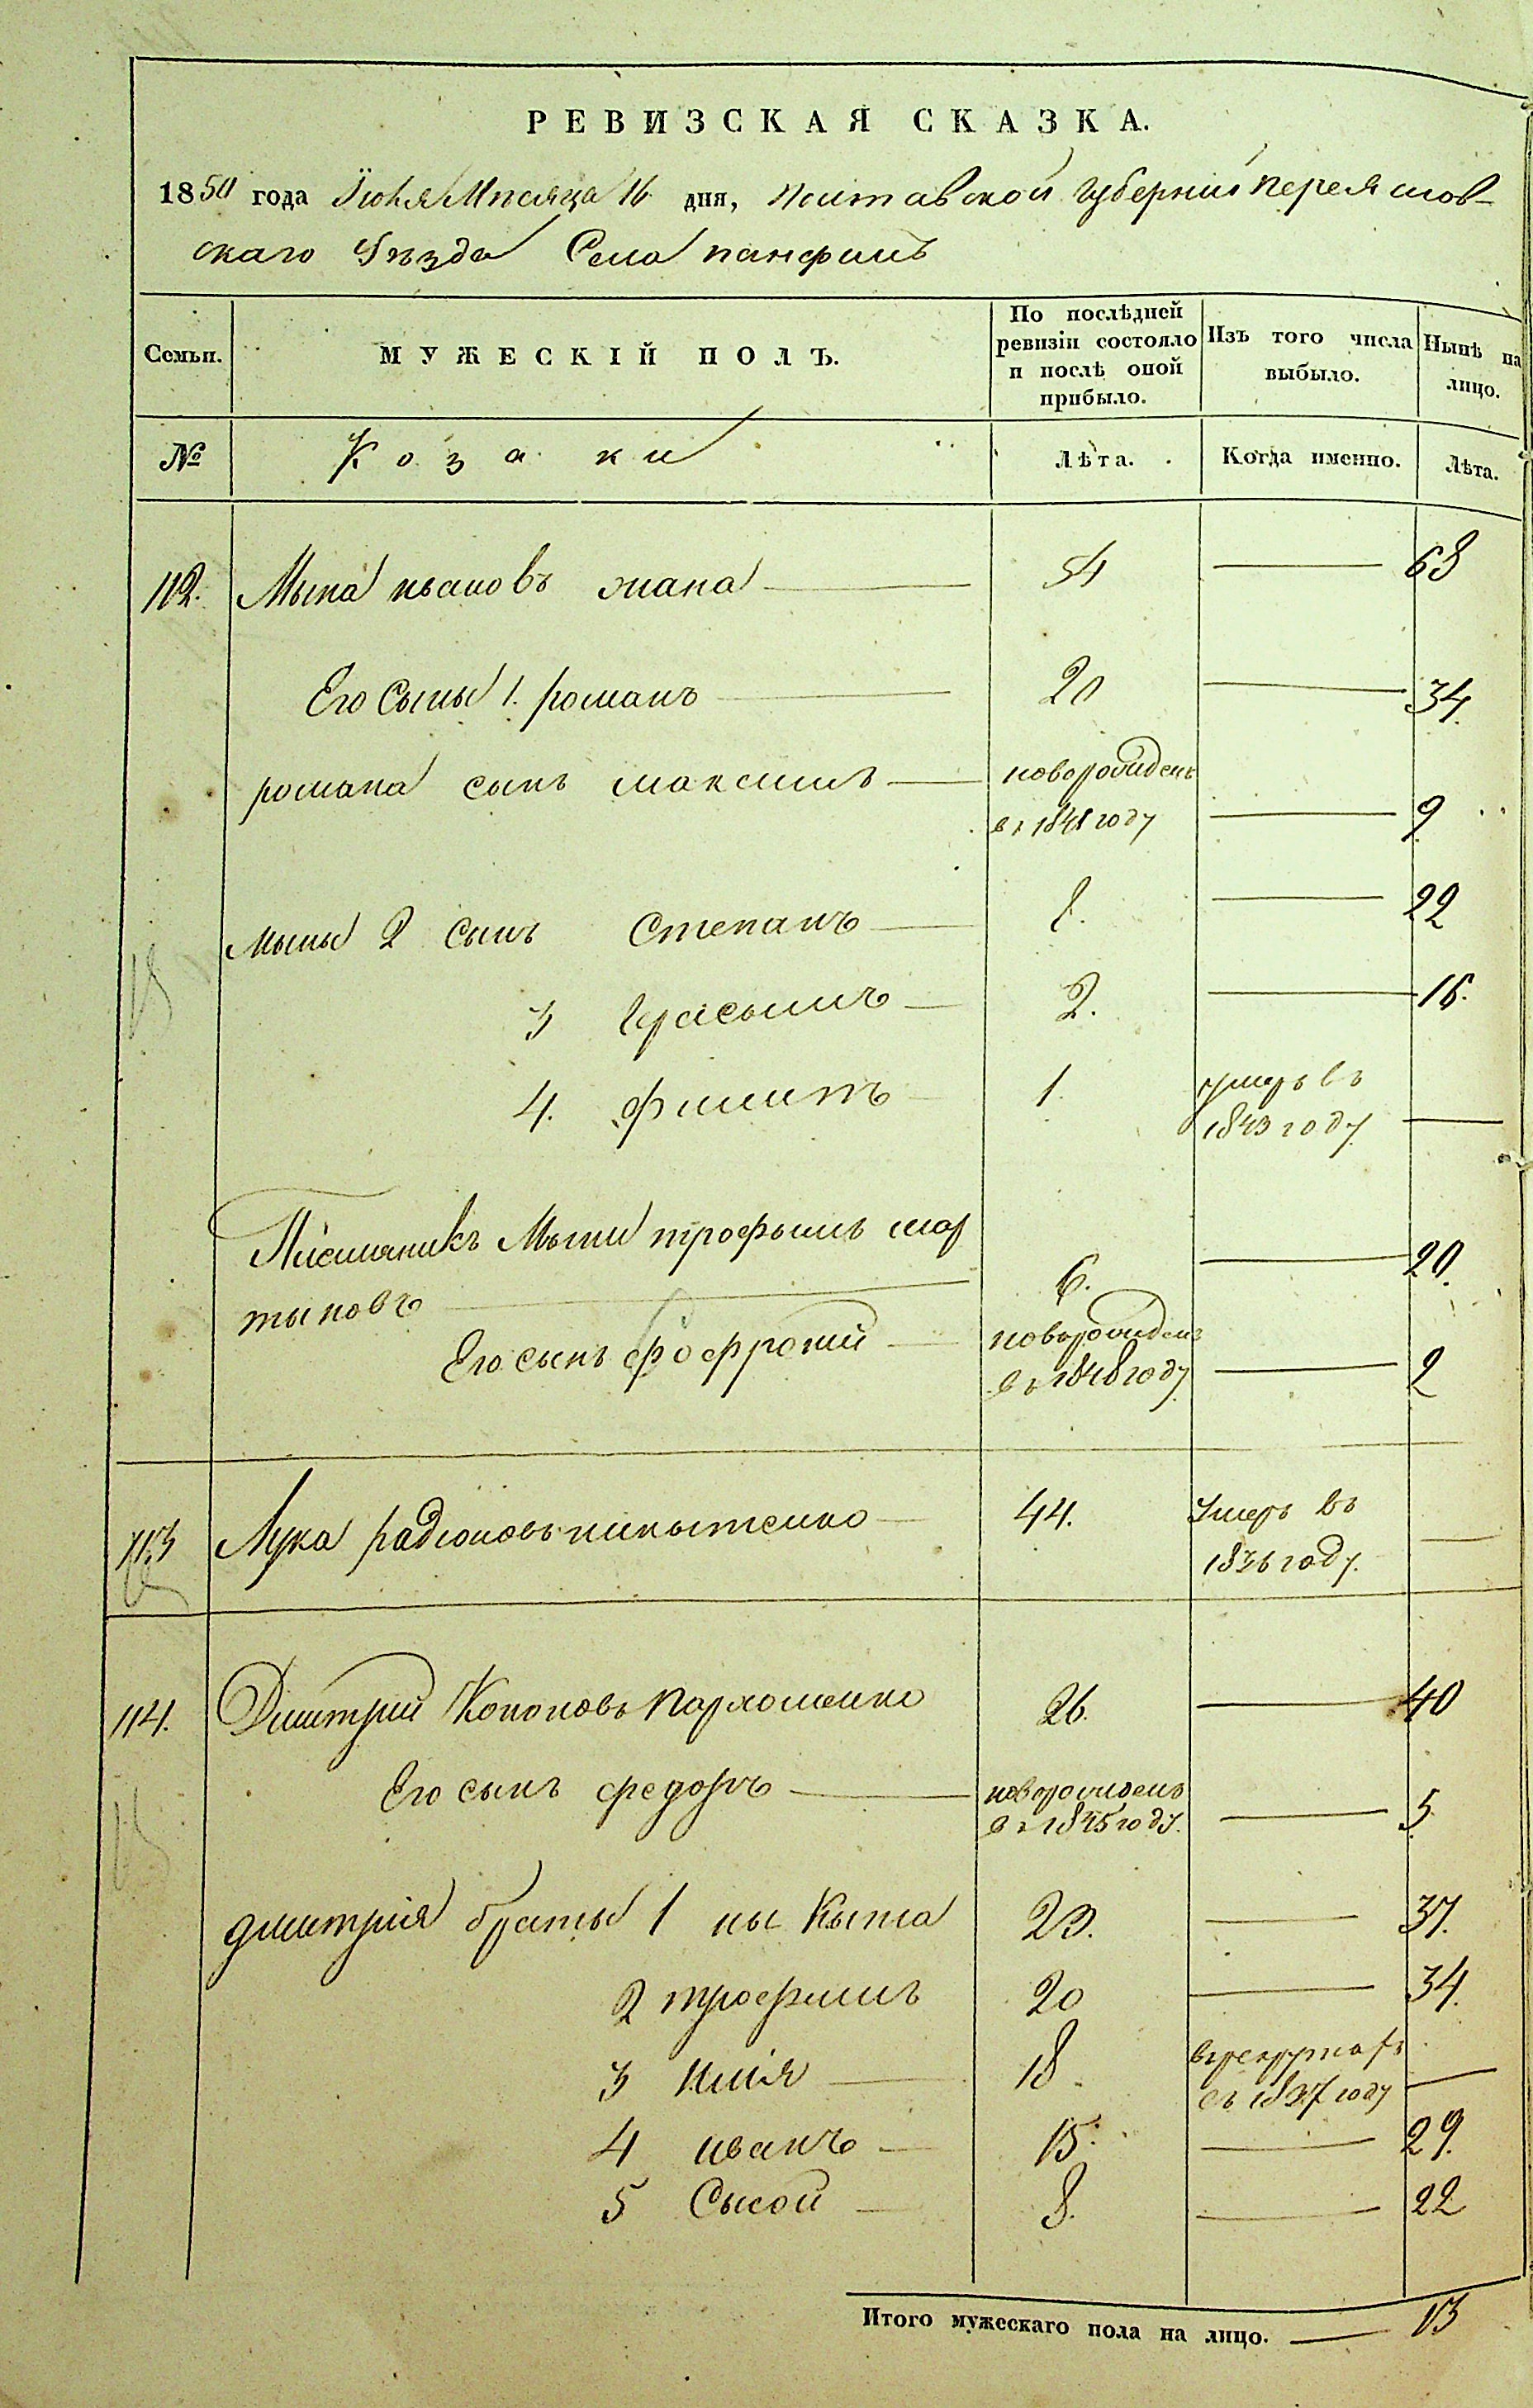 РЕВИЗСКАЯ СКАЗКА.
1850 года Іюля Мѣсяца 16 дня, полтавской Губерніи переяслов-
скаго Уѣзда Села панфилъ
Семьи.
МУЖЕСКІЙ ПОЛЪ.
По послѣдней ревизіи состояло и послѣ оной прибыло.
Изъ того числа выбыло.
Нынѣ на лицо.
№ Козаки Лѣта. Когда именно. Лѣта.
112. Мына 54 68
Его Сыны 1. романъ 20 34.
романа сынъ максимъ новорожденъ
въ 1841 году 9
мыны 2 сынъ Степанъ 8. 22
3 Гарасымъ 2. 16.
4. филипъ 1. умеръ въ
1843 году
Племяникъ Мыны трофымъ мар
тыновъ 6. 20.
Его сынъ новорожденъ
въ 1848 году 2
113 Лука радіоновъ никытенко 44. Умеръ въ
1836 году.
114. Дмитрий Кононовъ пархоменко 26. 40
Его сынъ федоръ новорожденъ
въ 1845 году. 5
дмитрія братья 1 ны кыта 23. 37.
2 трофимъ 20 34.
3 илія 18 въ рекрутахъ
съ 1837 году
4 иванъ 15. 29.
5 Сысой 8. 22
Итого мужескаго пола на лицо. 13